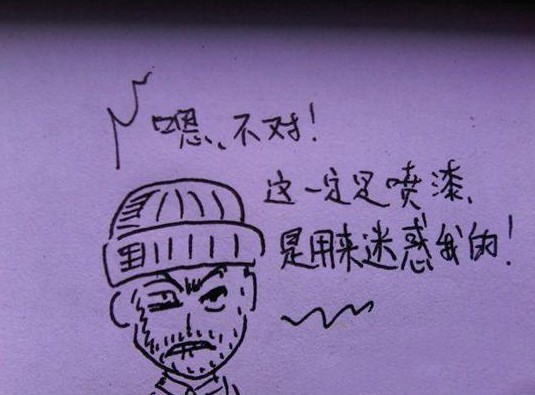 嗯、不对！
这一定是喷漆、
是用来迷惑我的！